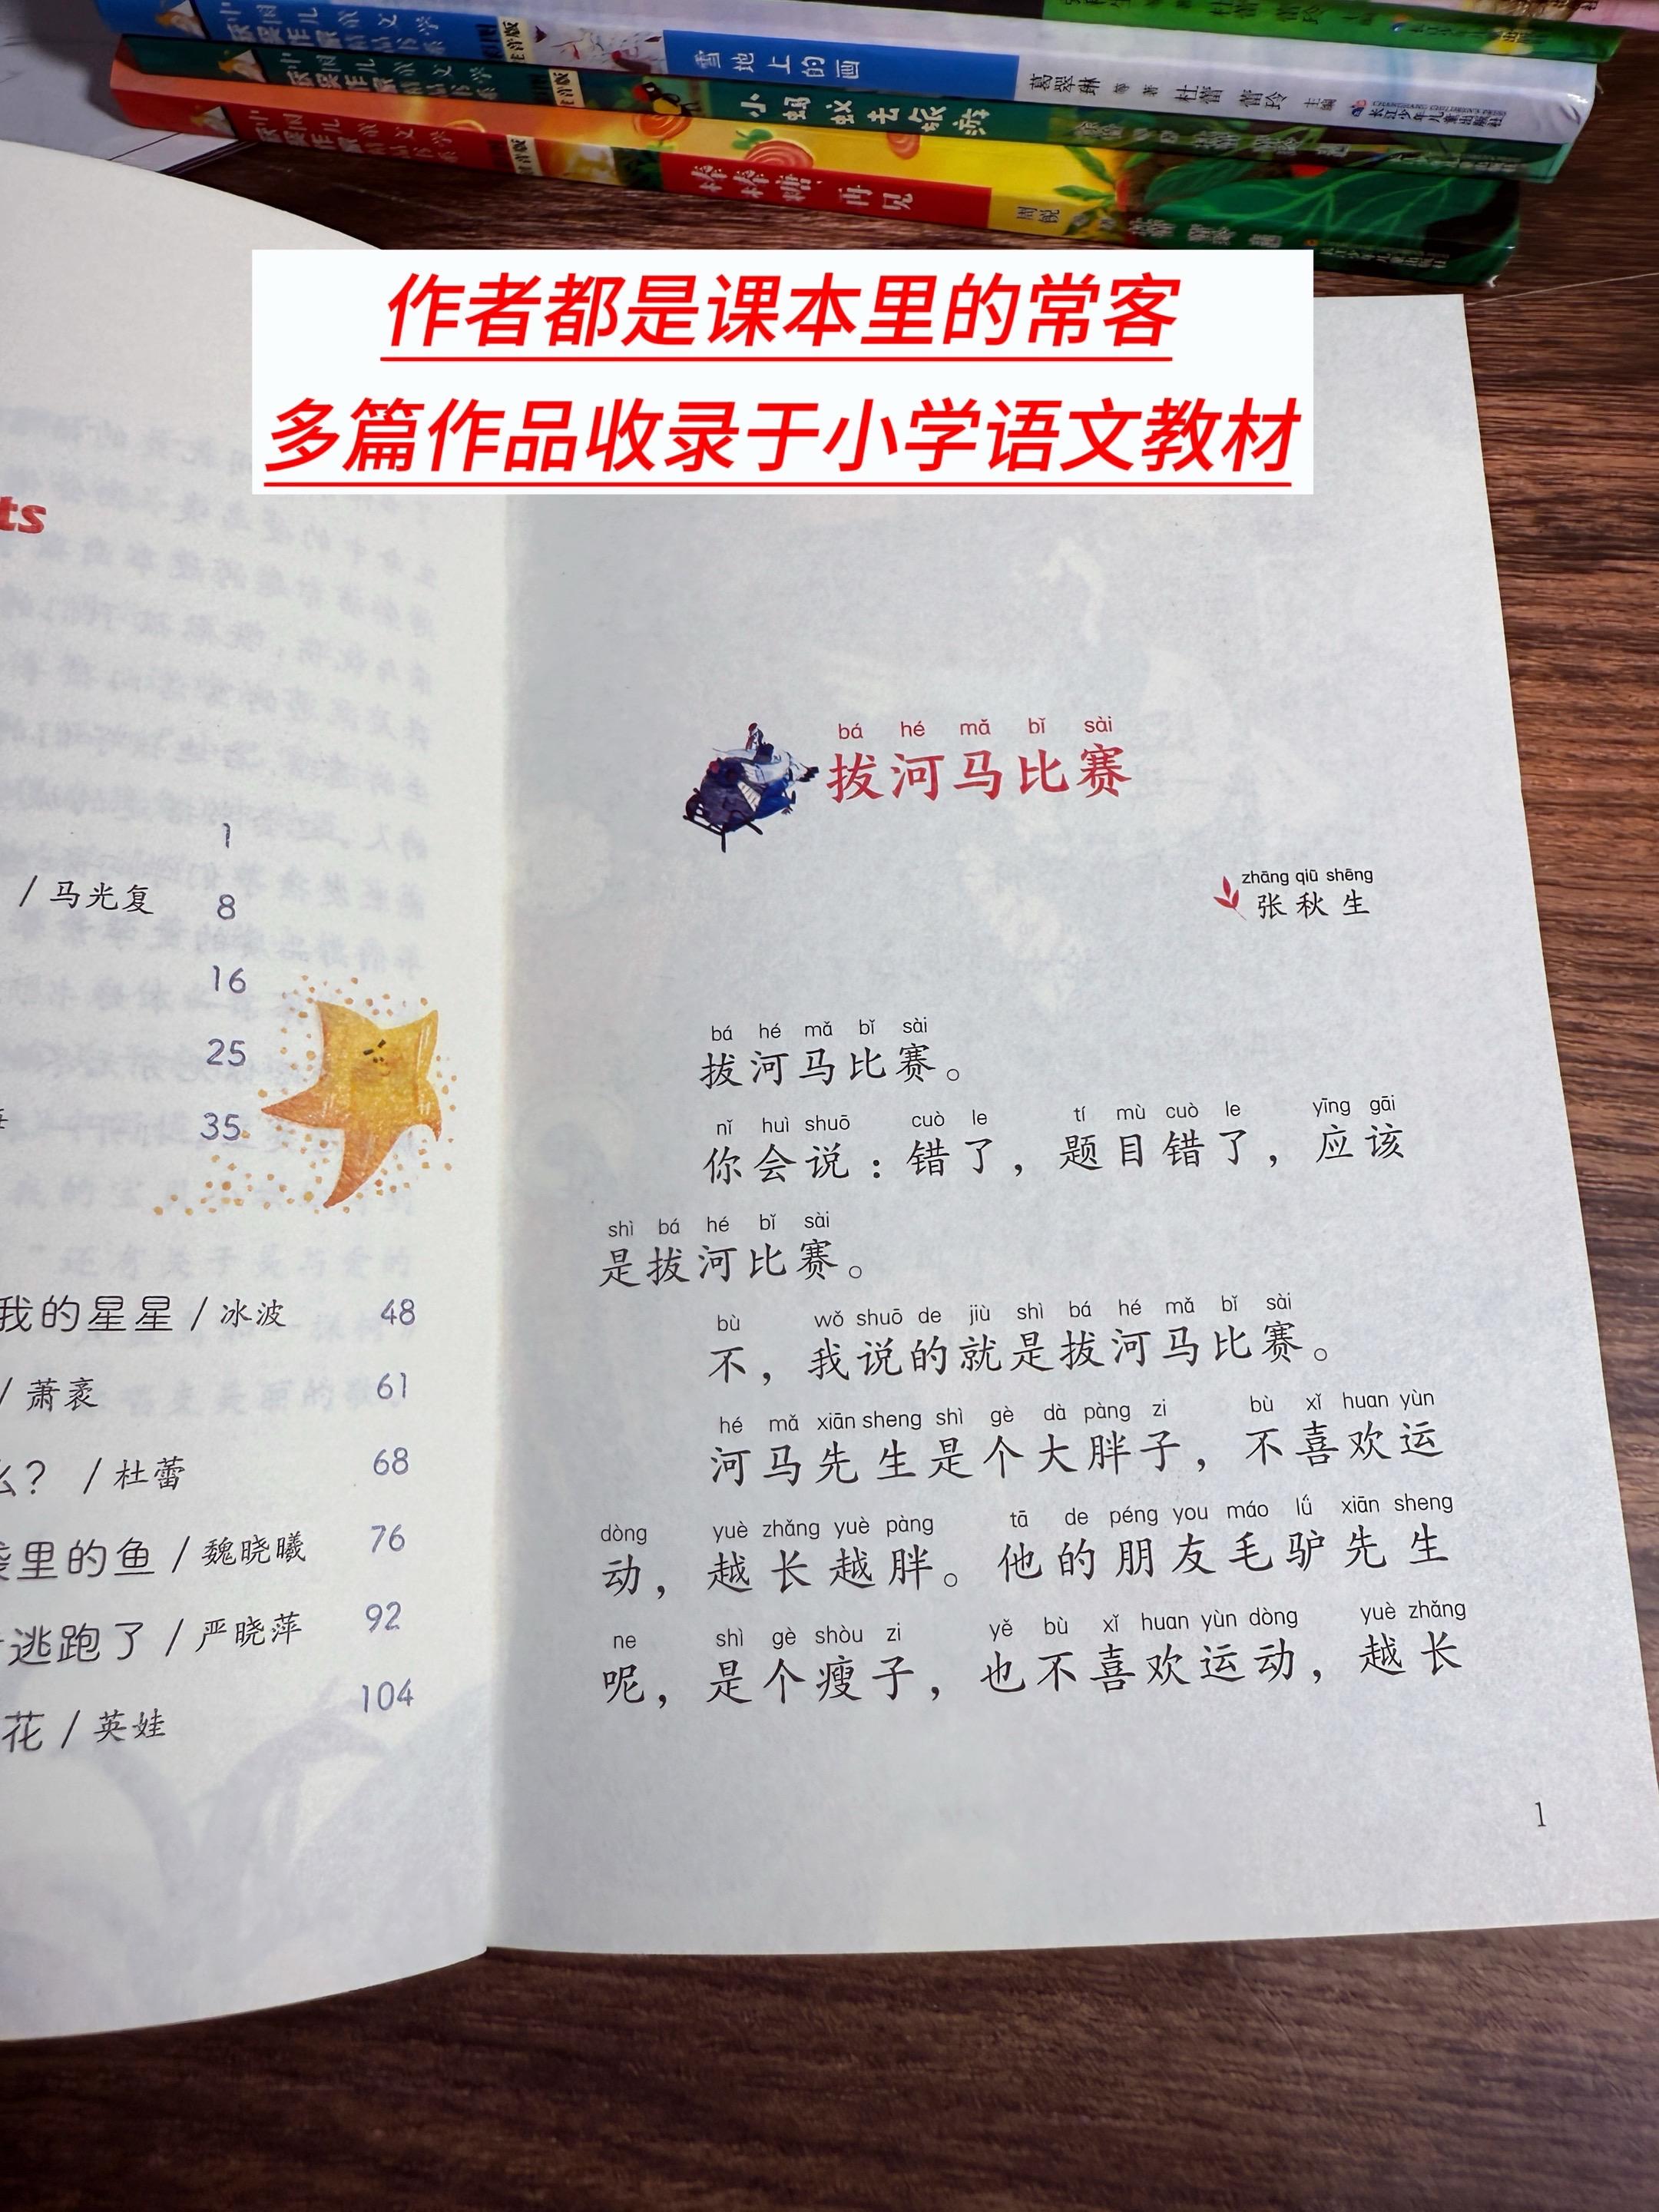 雪地上的画
葛翠琳 等 著 杜蕾 蕾玲 主编
CHANGJIANG CHILDREN'S PRESS
长江少年儿童出版社
小蚂蚁去旅游
注音版
棒棒糖,再见
周锐
作者都是课本里的常客
多篇作品收录于小学语文教材
ts
1
/ 马光复 8
16
25
35
我的星星 / 冰波 48
/ 萧袤 61
么? / 杜蕾 68
里的鱼 / 魏晓曦 76
逃跑了 / 严晓萍 92
花 / 英娃 104
bá hé mǎ bǐ sài
拔河马比赛
zhāng qiū shēng
张秋生
bá hé mǎ bǐ sài
拔河马比赛。
nǐ huì shuō cuò le tí mù cuò le yīng gāi
你会说:错了,题目错了,应该
shì bá hé bǐ sài
是拔河比赛。
bù wǒ shuō de jiù shì bá hé mǎ bǐ sài
不,我说的就是拔河马比赛。
hé mǎ xiān sheng shì gè dà pàng zi bù xǐ huan yùn
河马先生是个大胖子,不喜欢运
dòng yuè zhǎng yuè pàng tā de péng you máo lǘ xiān sheng
动,越长越胖。他的朋友毛驴先生
ne shì gè shòu zi yě bù xǐ huan yùn dòng yuè zhǎng
呢,是个瘦子,也不喜欢运动,越长
1